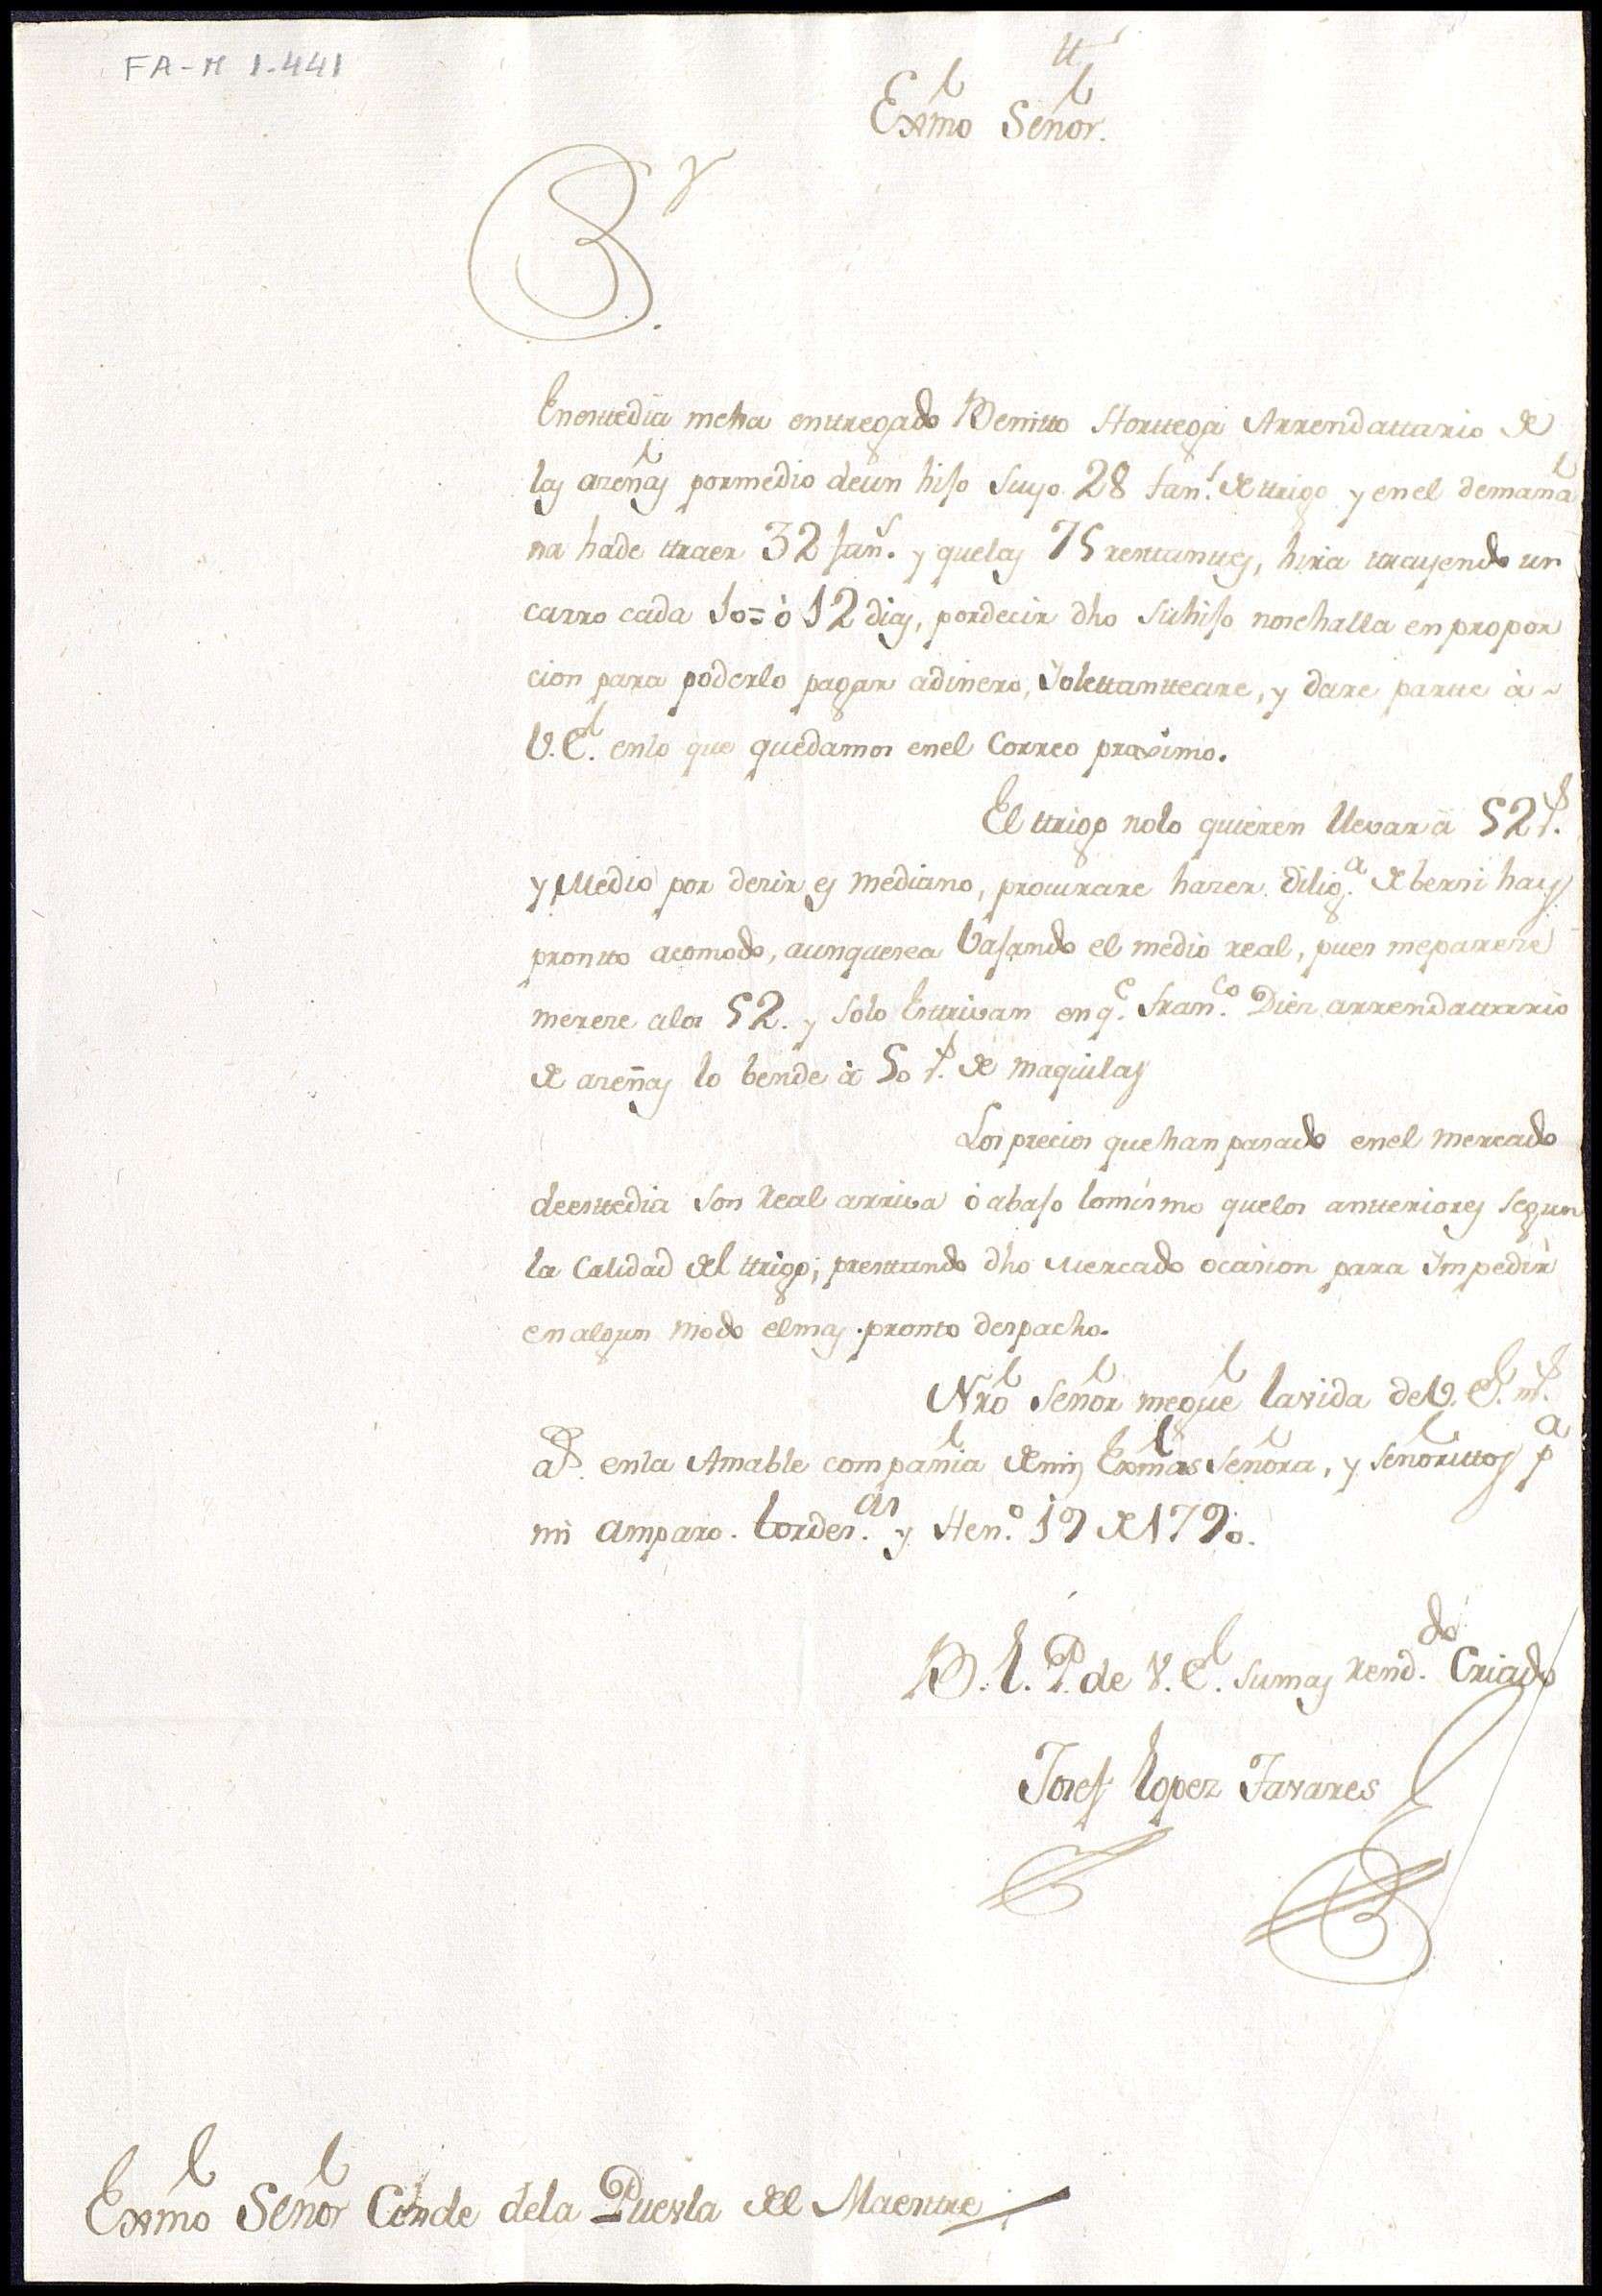 FA-M 1.441
tt
Exmo Señor.
Enesttedia meha enttregado Benitto Horttega Arrendattario de
las azeñas pormedio deun hijo suyo 28 fans. de ttrigo y enel demaña
na hade ttraer 32 fans. y quelas 75 resttanttes, hira ttrayendo un
carro cada 10= ò 12 dias, pordecir dho suhijo nosehalla en propor
cion para poderlo pagar adinero, solettantteare, y dare partte à
V.E. enlo que quedamos enel Correo proximo.
El ttrigo nolo quieren llevar a 52 rs.
y Medio por dezir es mediano, procurare hazer dilig.a de bersi hay
prontto acomodo, aunquesea bajando el medio real, pues mepareze
mereze alos 52. y solo Esttrivan en q.e Fran.co Diez arrendattario
de azeñas lo bende à 50 rs. de maquilas
Los precios quehan pasado enel mercado
deesttedia son Real arriva ò abajo lomismo quelos antteriores segun
la Calidad del ttrigo; presttando dho Mercado ocasion para Impedir
en algun modo elmas pronto despacho.
Nro Señor megue la vida deV.E. ms.
as. enla Amable compañia demis Exmas Señora, y señorittos pa
mi amparo. tordes.as y Hen.o 19 de 1790.
B. L. P. de V.E. sumas Rend.do Criado
Josef Lopez Tavares
Exmo Señor Conde dela Puevla del Maesttre